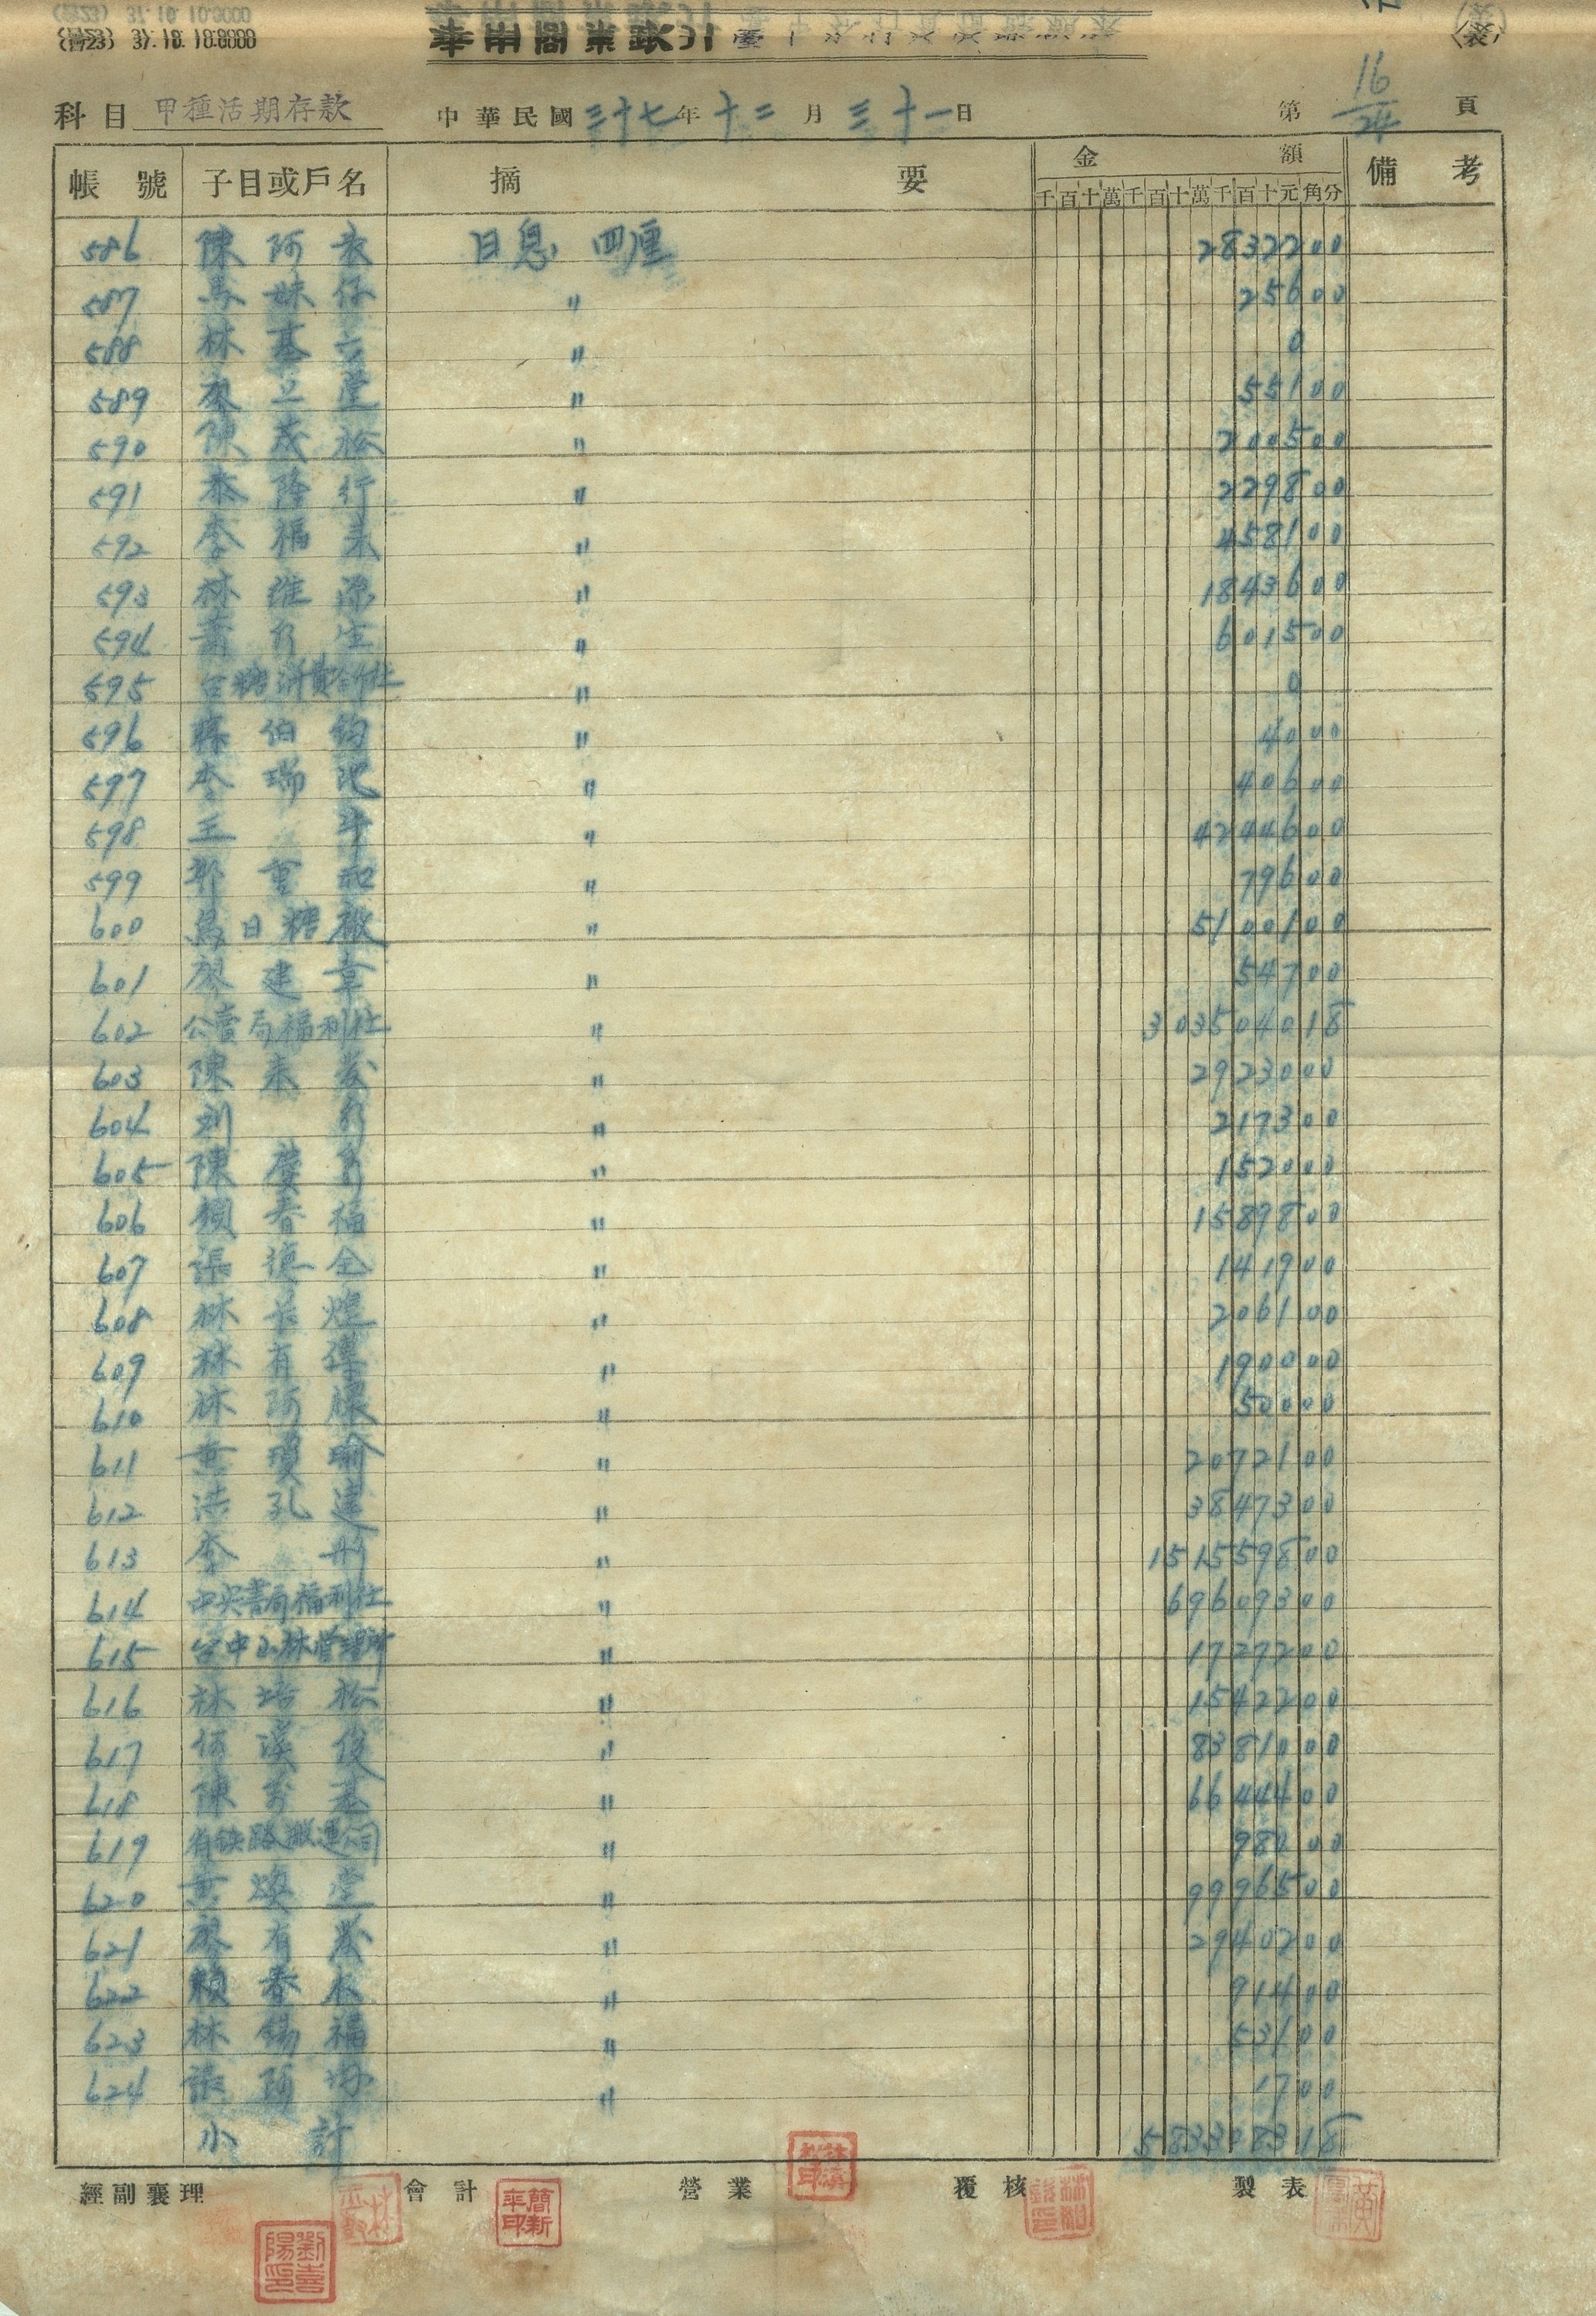 (書23) 37.10.10.8000
(表)
科目 甲種活期存款 中華民國三十七年十二月三十一日 第 16/24 頁
帳號 子目或戶名 摘要 金額 備考
千百十萬千百十萬千百十元角分
586 陳阿衣 日息 四厘 2832200
587 馬妹仔 〃 25600
588 林基 〃 0
589 廖立堂 〃 55100
590 陳茂松 〃 200500
591 泰隆行 〃 229800
592 李福来 〃 458100
593 林維源 〃 1843600
594 生 〃 601500
595 台糖消費合作社 〃 0
596 蔡伯鈞 〃 4000
597 李瑞地 〃 40600
598 王斗 〃 4244600
599 郭 和 〃 79600
600 烏日糖廠 〃 5100100
601 廖建章 〃 54700
602 公賣局福利社 〃 303504018
603 陳来發 〃 2923000
604 刘 〃 217300
605 陳慶 〃 152000
606 賴春福 〃 1589800
607 張德全 〃 141900
608 林長煌 〃 206100
609 林有 〃 190000
610 林阿 〃 50000
611 黄瓊瑜 〃 2072100
612 洪孔達 〃 3847300
613 李彤 〃 151559800
614 中央書局福利社 〃 69609300
615 台中山林管理所 〃 1727200
616 林培松 〃 1542200
617 何漢俊 〃 8381000
618 陳基 〃 6644400
619 有鉄路搬運公司 〃 98000
620 黄煥堂 〃 9996500
621 廖有發 〃 2940200
622 賴春木 〃 91400
623 林錫福 〃 53100
624 張阿 〃 1700
小計 583308318
經副襄理 會計 營業 覆核 製表
簡新
劉喜陽印